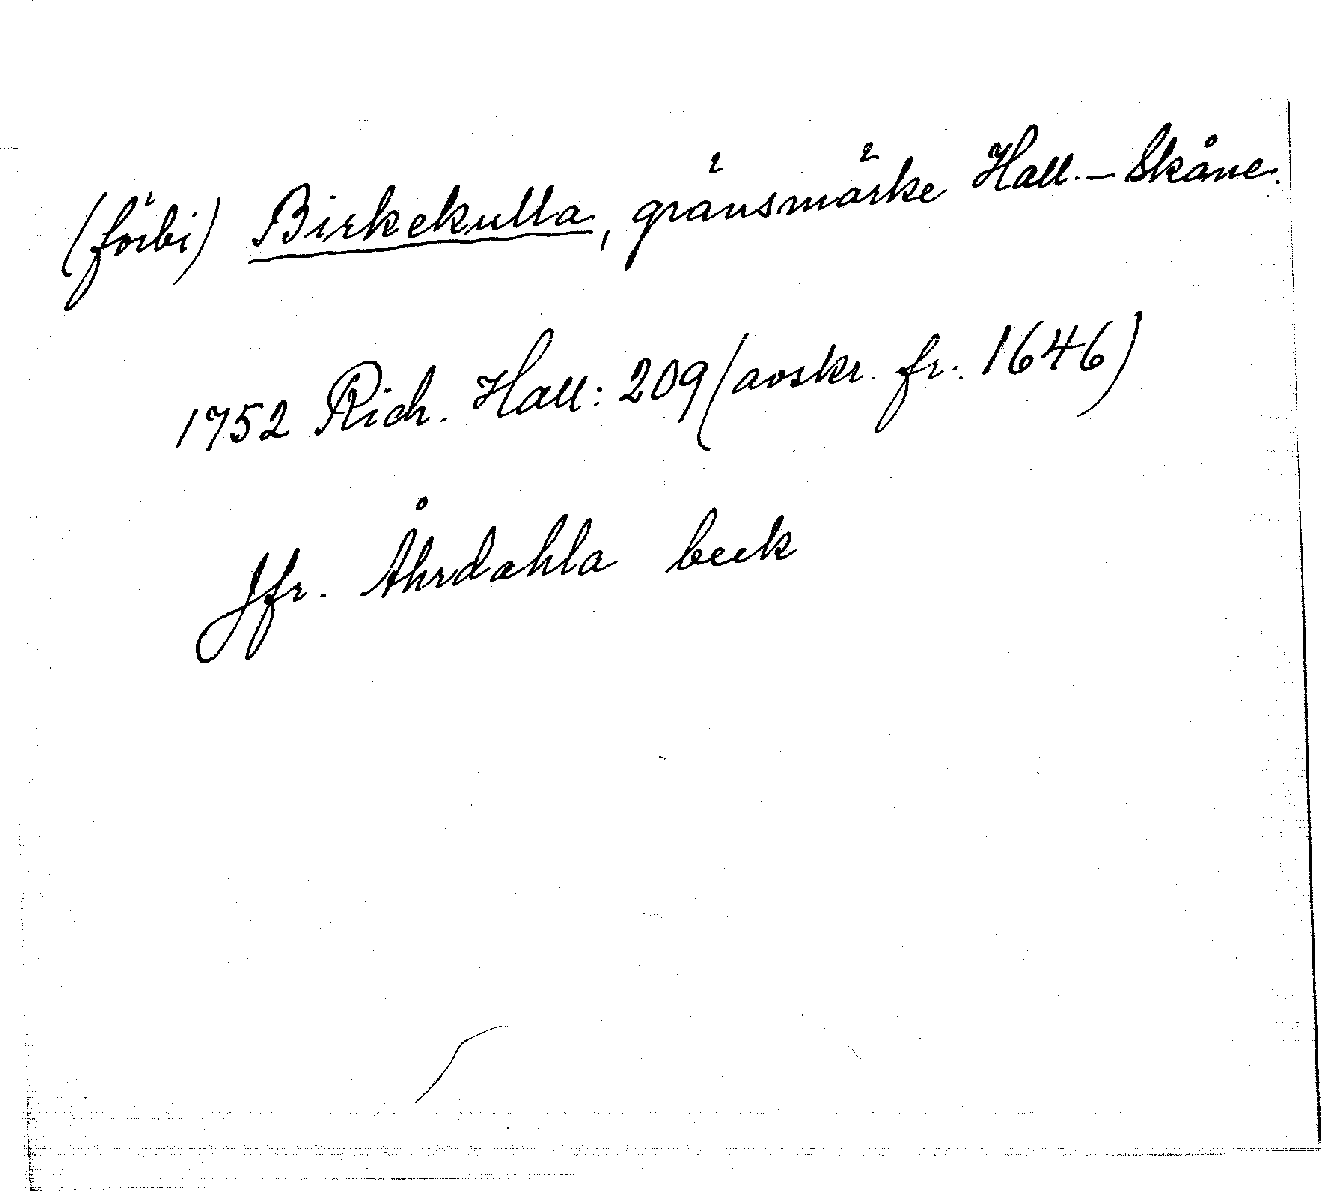 (förbi) Birkekulla, gränsmärke Hall. – Skåne.
1752 Rich. Hall: 209 (avskr. fr. 1646)
Jfr. Åhrdahla beck